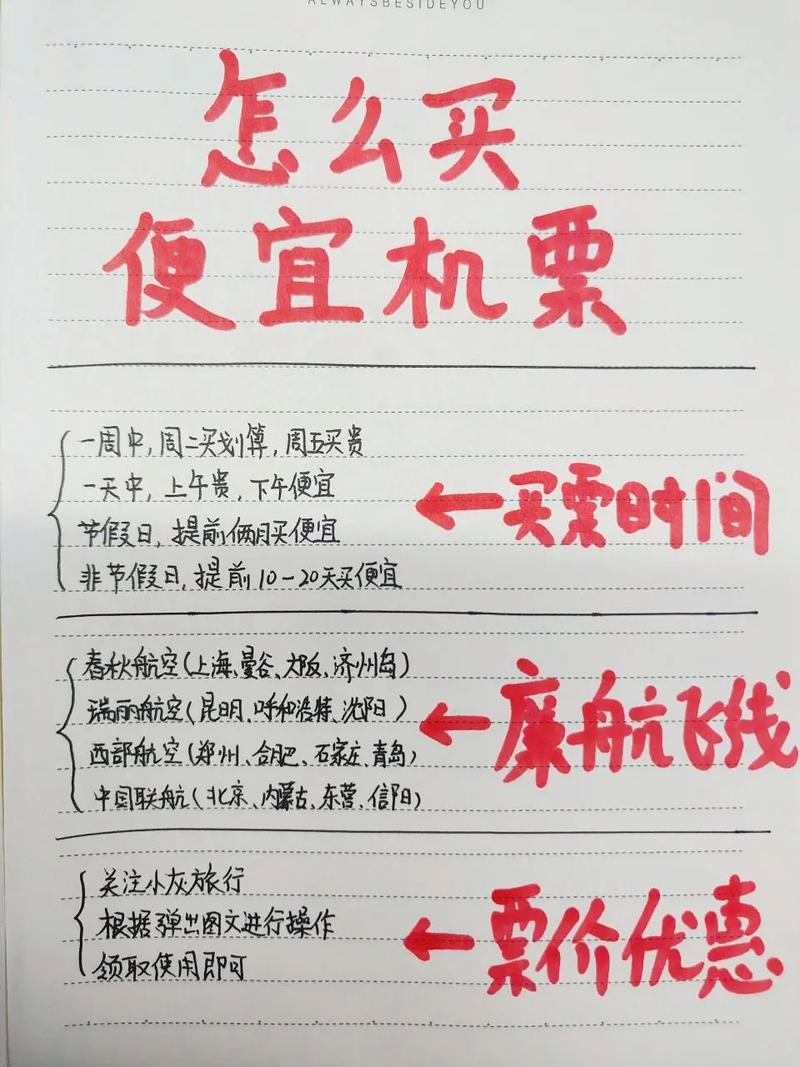 ALWAYSBESIDEYOU
怎么买
便宜机票
一周中，周二买划算，周五买贵
一天中，上午贵，下午便宜
节假日，提前俩月买便宜
非节假日，提前10-20天买便宜
←买票时间
春秋航空（上海、曼谷、大阪、济州岛）
瑞丽航空（昆明、呼和浩特、沈阳）
西部航空（郑州、合肥、石家庄、青岛）
中国联航（北京、内蒙古、东营、信阳）
←廉航飞线
关注小灰旅行
根据弹出图文进行操作
领取使用即可
←票价优惠